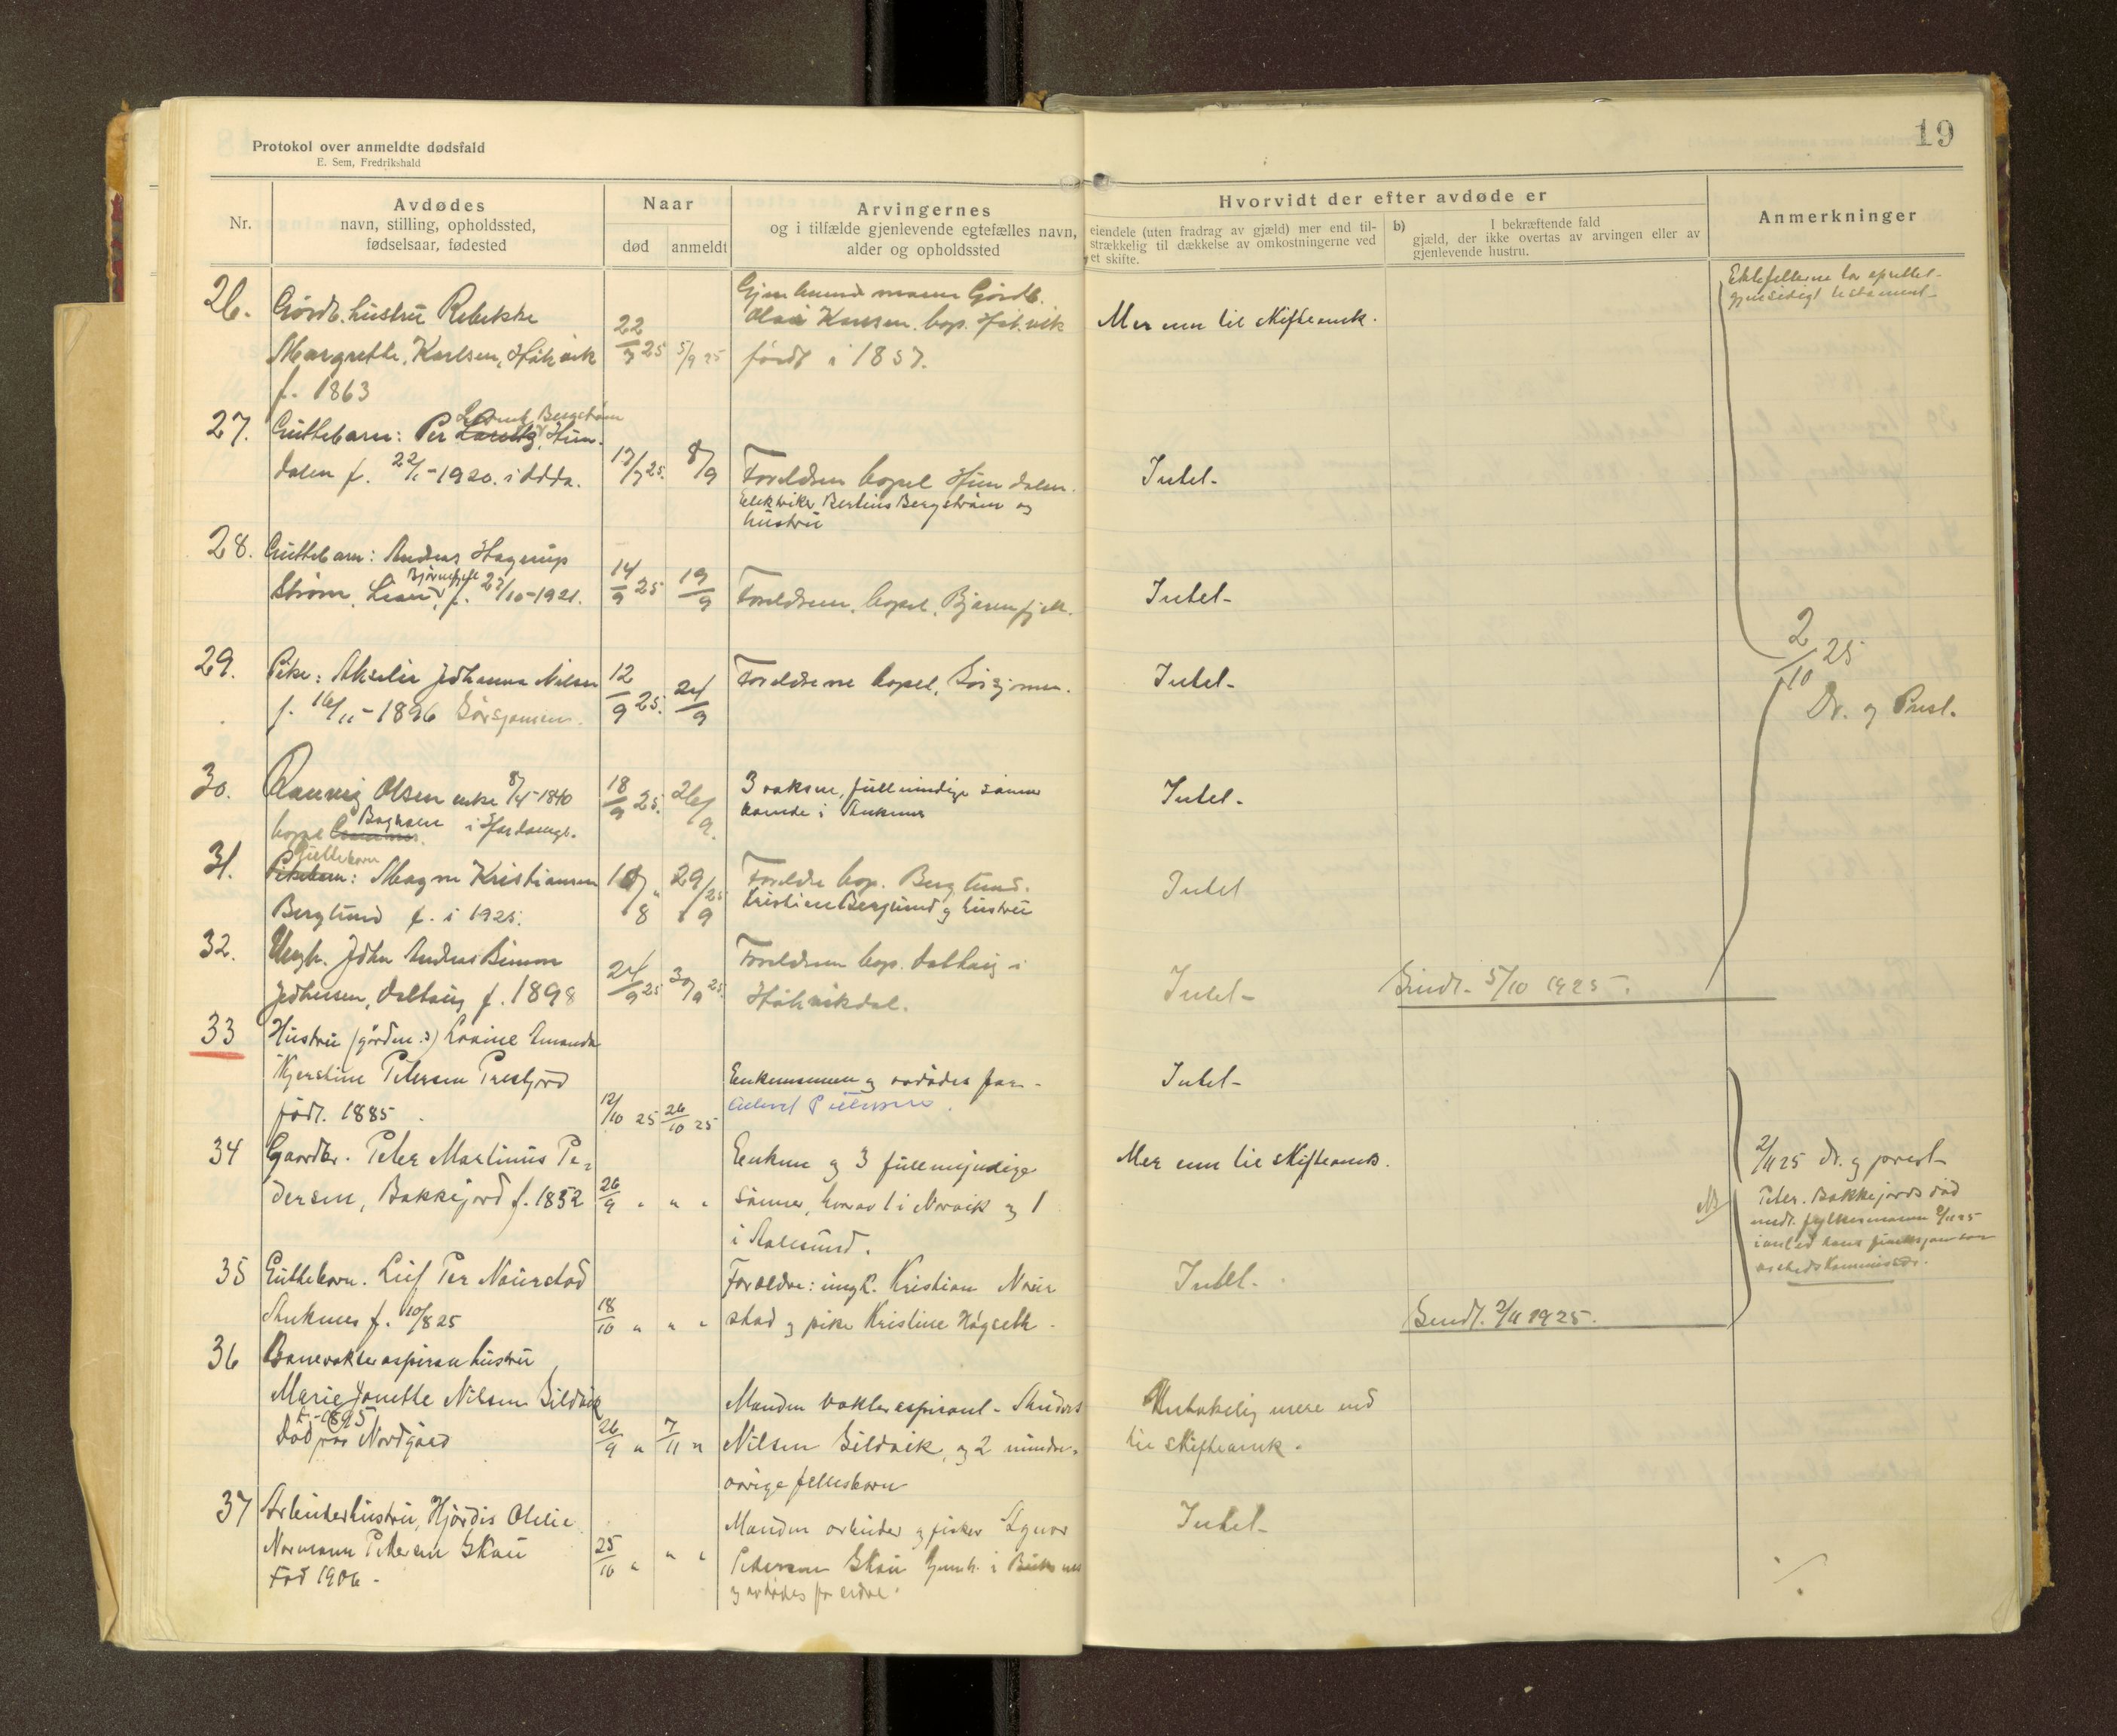 Protokol over anmeldte dødsfald
E. Sem, Fredrikshald
19
Nr.
Avdødes
navn, stilling, opholdssted,
fødselsaar, fødested
Naar
død
anmeldt
Arvingernes
og i tilfælde gjenlevende egtefælles navn,
alder og opholdssted
Hvorvidt der efter avdøde er
eiendele (uten fradrag av gjæld) mer end til-
strækkelig til dækkelse av omkostningerne ved
et skifte.
b) I bekræftende fald
gjæld, der ikke overtas av arvingen eller av
gjenlevende hustru.
Anmerkninger
26. Gårdb. hustru Rebekke
Margrethe Karlsen, Håkvik
f. 1863
22/7 25 5/9 25
mann Gårdb.
Olai Karlsen. bop. Håkvik
født i 1857.
Mer enn til skifteomk.
Ektefellerne har oprettet
gjensidigt testament
27. Guttebarn: Per Bergstrøm Hun-
dalen f. 22/1-1920. i Odda.
17/7 25. 8/9
Foreldren bopel Hundalen.
Elektriker Bertius Bergstrøm og
hustru
Intet-
28. Guttebarn: Andreas Hagerup
Strøm, Bjørnefjell f. 23/10-1921.
14/9 25 19/9
Foreldren, bopel, Bjørnfjell.
Intet-
29. Pike: Johanna Nilsen
f. 16/11-1896 Sørsjonen.
12/9 25. 24/9
Foreldrene bopel, Sørsjonen.
Intet-
2/10 25
Dr. og Prest.
30. Olsen enke 8/4-1840
bopel i
18/9 25. 26/9.
3 voksne, fullmyndige sønner
boende i Ankenes
Intet-
31. Guttebarn
Pikebarn: Magne Kristiansen
Berglund f. i 1925.
8 29/9 25
Foreldre bop. Berglund.
Kristian Berglund og hustru
Intet
32. Ungk. John Andreas Simon
Johansen, Dalhaug f. 1898
24/9 25 30/9 25.
Foreldren bop. Dalhaug i
Håkvikdal.
Intet-
Sendt 5/10 1925.
33 Hustru Lovise Amanda
Kjerstine Petersen Prestjord
født. 1885.
12/10 25 26/10 25
Enkemannen og avdødes far-
Intet-
34 Gaardbr. Peter Martinus Pe-
dersen, Bakkejord f. 1852
26/9 " " "
Enken og 3 fullmyndige
sønner, hvorav 1 i Narvik og 1
i Aalesund.
Mer enn til skifteomk.
2/11 25 dr. og prest
NB
Peter. Bakkejords død
medt. fylkesmannen 2/11 25
35 Guttebarn. Leif Per Naurstad
Ankenes f. 10/8 25
18/10 " " "
Foreldre: ungk. Kristian Naur
stad og pike Kristine Høgseth.
Intet.
Sendt. 2/11 1925.
36 Banevokteraspiran hustru
Marie Jonette Nilsen Sildvik
f.-1895
Død på Nordgård
26/9 " 7/11 "
Manden vokteraspirant-
Nilsen Sildvik, og 2 mindre-
årige fellesbarn
Antakelig mere end
til skifteomk.
37 Arbeiderhustru, Hjørdis Otelie
Normann Petersen Skau
Fød 1906-
25/10 " " "
Manden arbeider og fisker
Pedersen Skau i
og avdødes foreldre.
Intet-